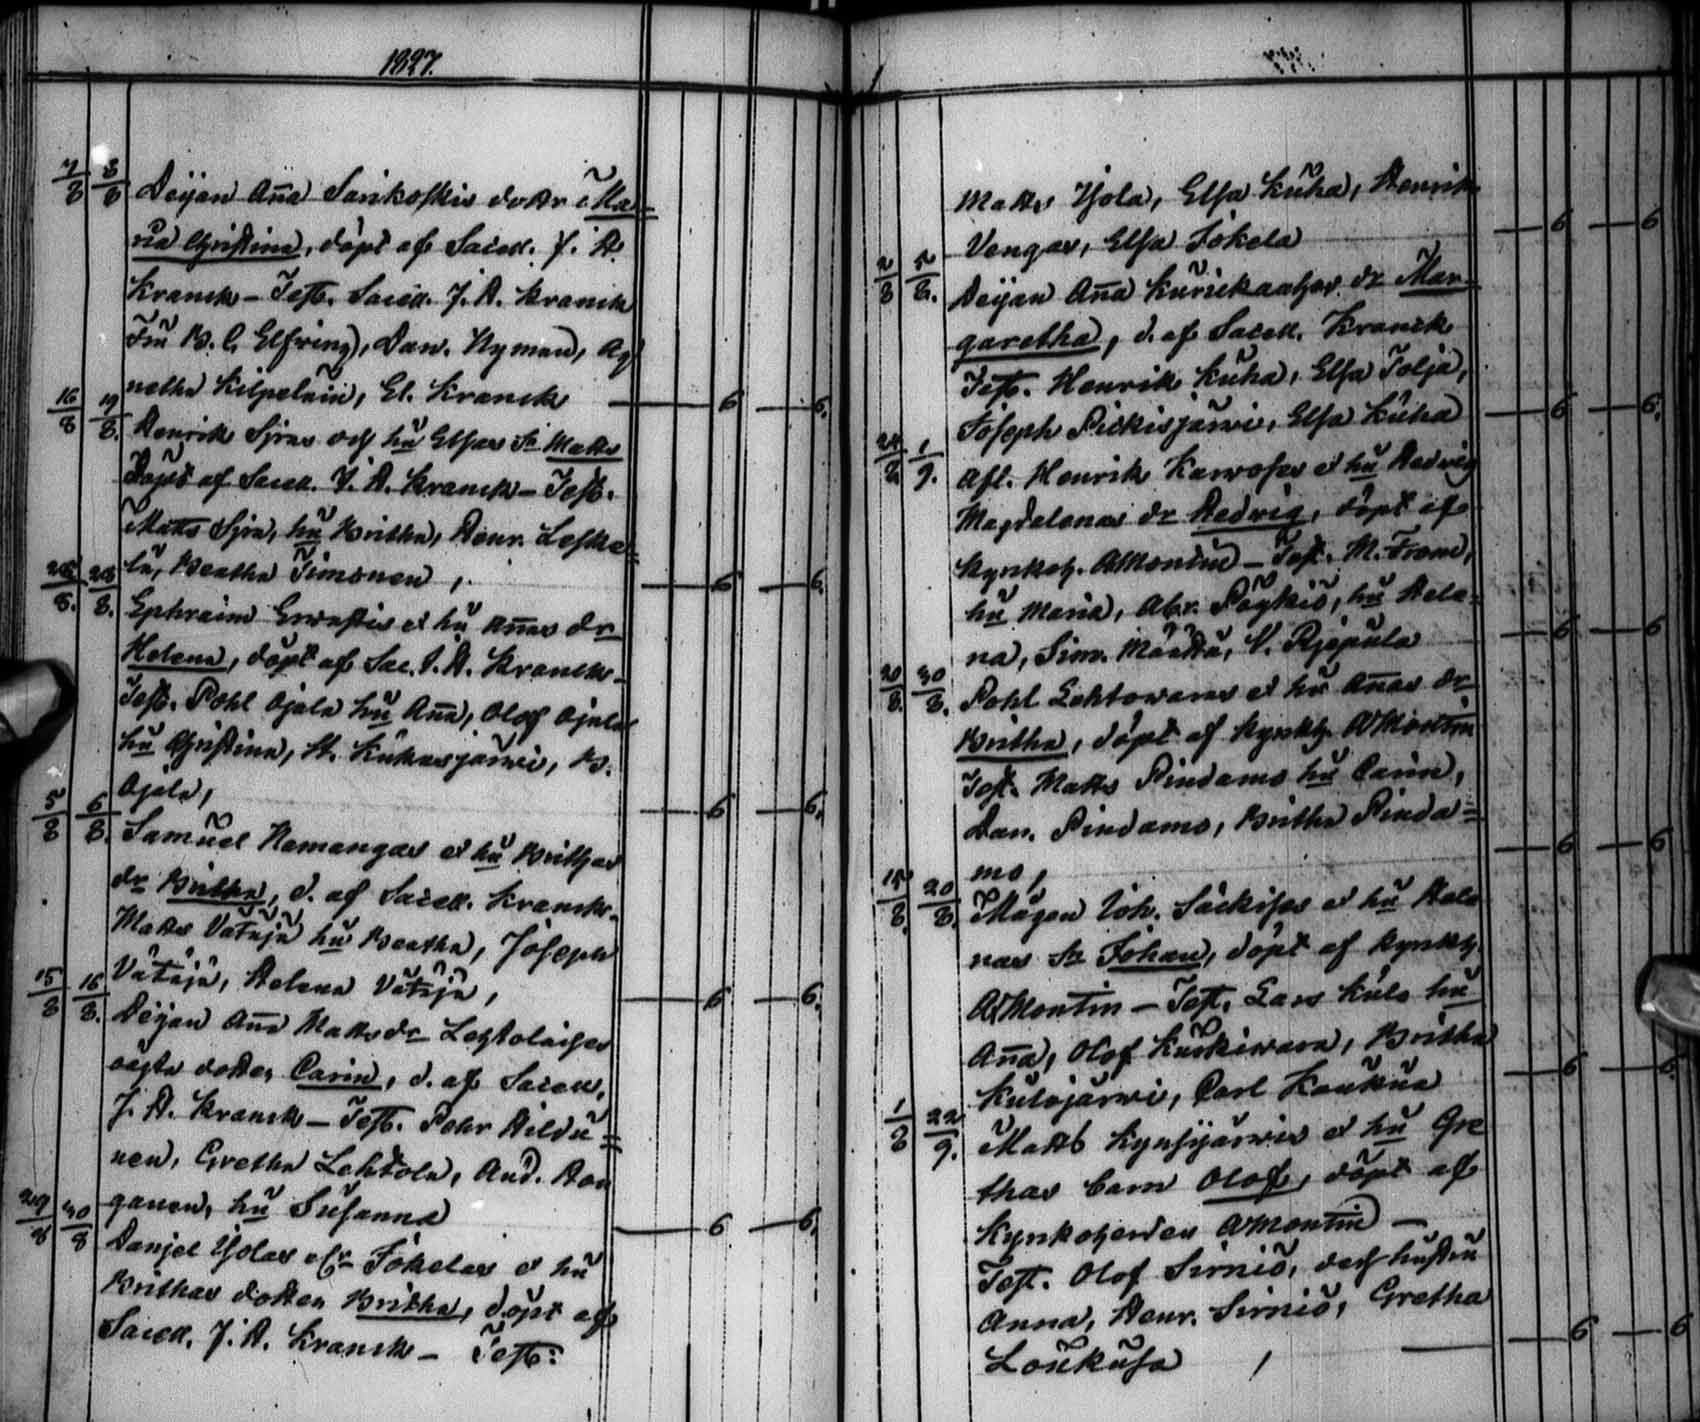 1827.
7/8 8/8 Deijan Aña Sarikoskis dottr Ma=
ria Christina, döpt af Sacell. J. A.
Kranck – Test. Sacell. J. A. Kranck
Fru B. C. Elfving, Dan. Nyman, Ag
netha Kilpelain, El. Kranck — 6 — 6.
16/8 19/8. Henrik Sjras och hu Elsas Sn Matts
Döpt af Sacell. J. A. Kranck – Test.
Matts Sjra, hu Britha, Henr. Leske=
lä, Beatha Timonen, — 6 — 6.
8. 28/8. Ephraim Erwastis et hu Añas dr
Helena, döpt af Sac. J. A. Kranck –
Test. Pohl Ojala hu Aña, Olof Ojala
hu Christina, H. Kukasjärwi, B.
Ojala, — 6 — 6.
5/8 6/8. Samuel Hemangas et hu Brithas
dr Britha, d. af Sacell. Kranck.
Matts Vätäjä hu Beatha, Joseph
Vätäjä, Helena Vätäjä, — 6 — 6.
15/8 16/8. Deijan Aña Mattsdr Lehtolaises
oägta dotter Carin, d. af Sacell.
J. A. Kranck – Test. Pehr Hildu=
nen, Gretha Lehtola, And. Hon
ganen, hu Susanna — 6 — 6.
29/8 30/8 Danjel Yjolas Jokelas et hu
Brithas dotter Britha, döpt af
Sacell. J. A. Kranck – Test:
Matts Yjola, Elsa Kuha, Henrik
Vengas, Elsa Jokela — 6 — 6
2/8 5/8. Deijan Aña Kurickaahos dr Mar=
garetha, d. af Sacell. Kranck
Test. Henrik Kuha, Elsa Tolja,
Joseph Pickisjärwi, Elsa Kuha — 6 — 6.
24/8 1/9. Afl. Henrik Karwoses et hu Hedvig
Magdalenas dr Hedvig, döpt af
Kyrkoh. A Montin – Test. M. Trom,
hu Maria, Abr. Pöykiö, hu Hele=
na, Sim. Määttä, V. — 6 — 6
20/8. 30/8. Pohl Lehtowaras et hu Añas dr
Britha, döpt af Kyrkh. A Montin
Test. Matts Pindamo hu Carin,
Dan. Pindamo, Britha Pinda=
mo, — 6 — 6
15/8. 20/8. Mågen Joh. Säckises et hu Hele
nas Sn Johan, döpt af Kyrkh.
A Montin – Test. Lars Kulo hu
Aña, Olof Kurkiwara, Britha
Kulojärwi, Carl Kaukua — 6 — 6.
1/8 22/9. Matts Kynsijärwis et hu Gre
thas barn Olof, döpt af
Kyrkoherden A Montin –
Test. Olof Sirniö, dess hustru
Anna, Henr. Sirniö, Gretha
Loukusa, — 6 — 6